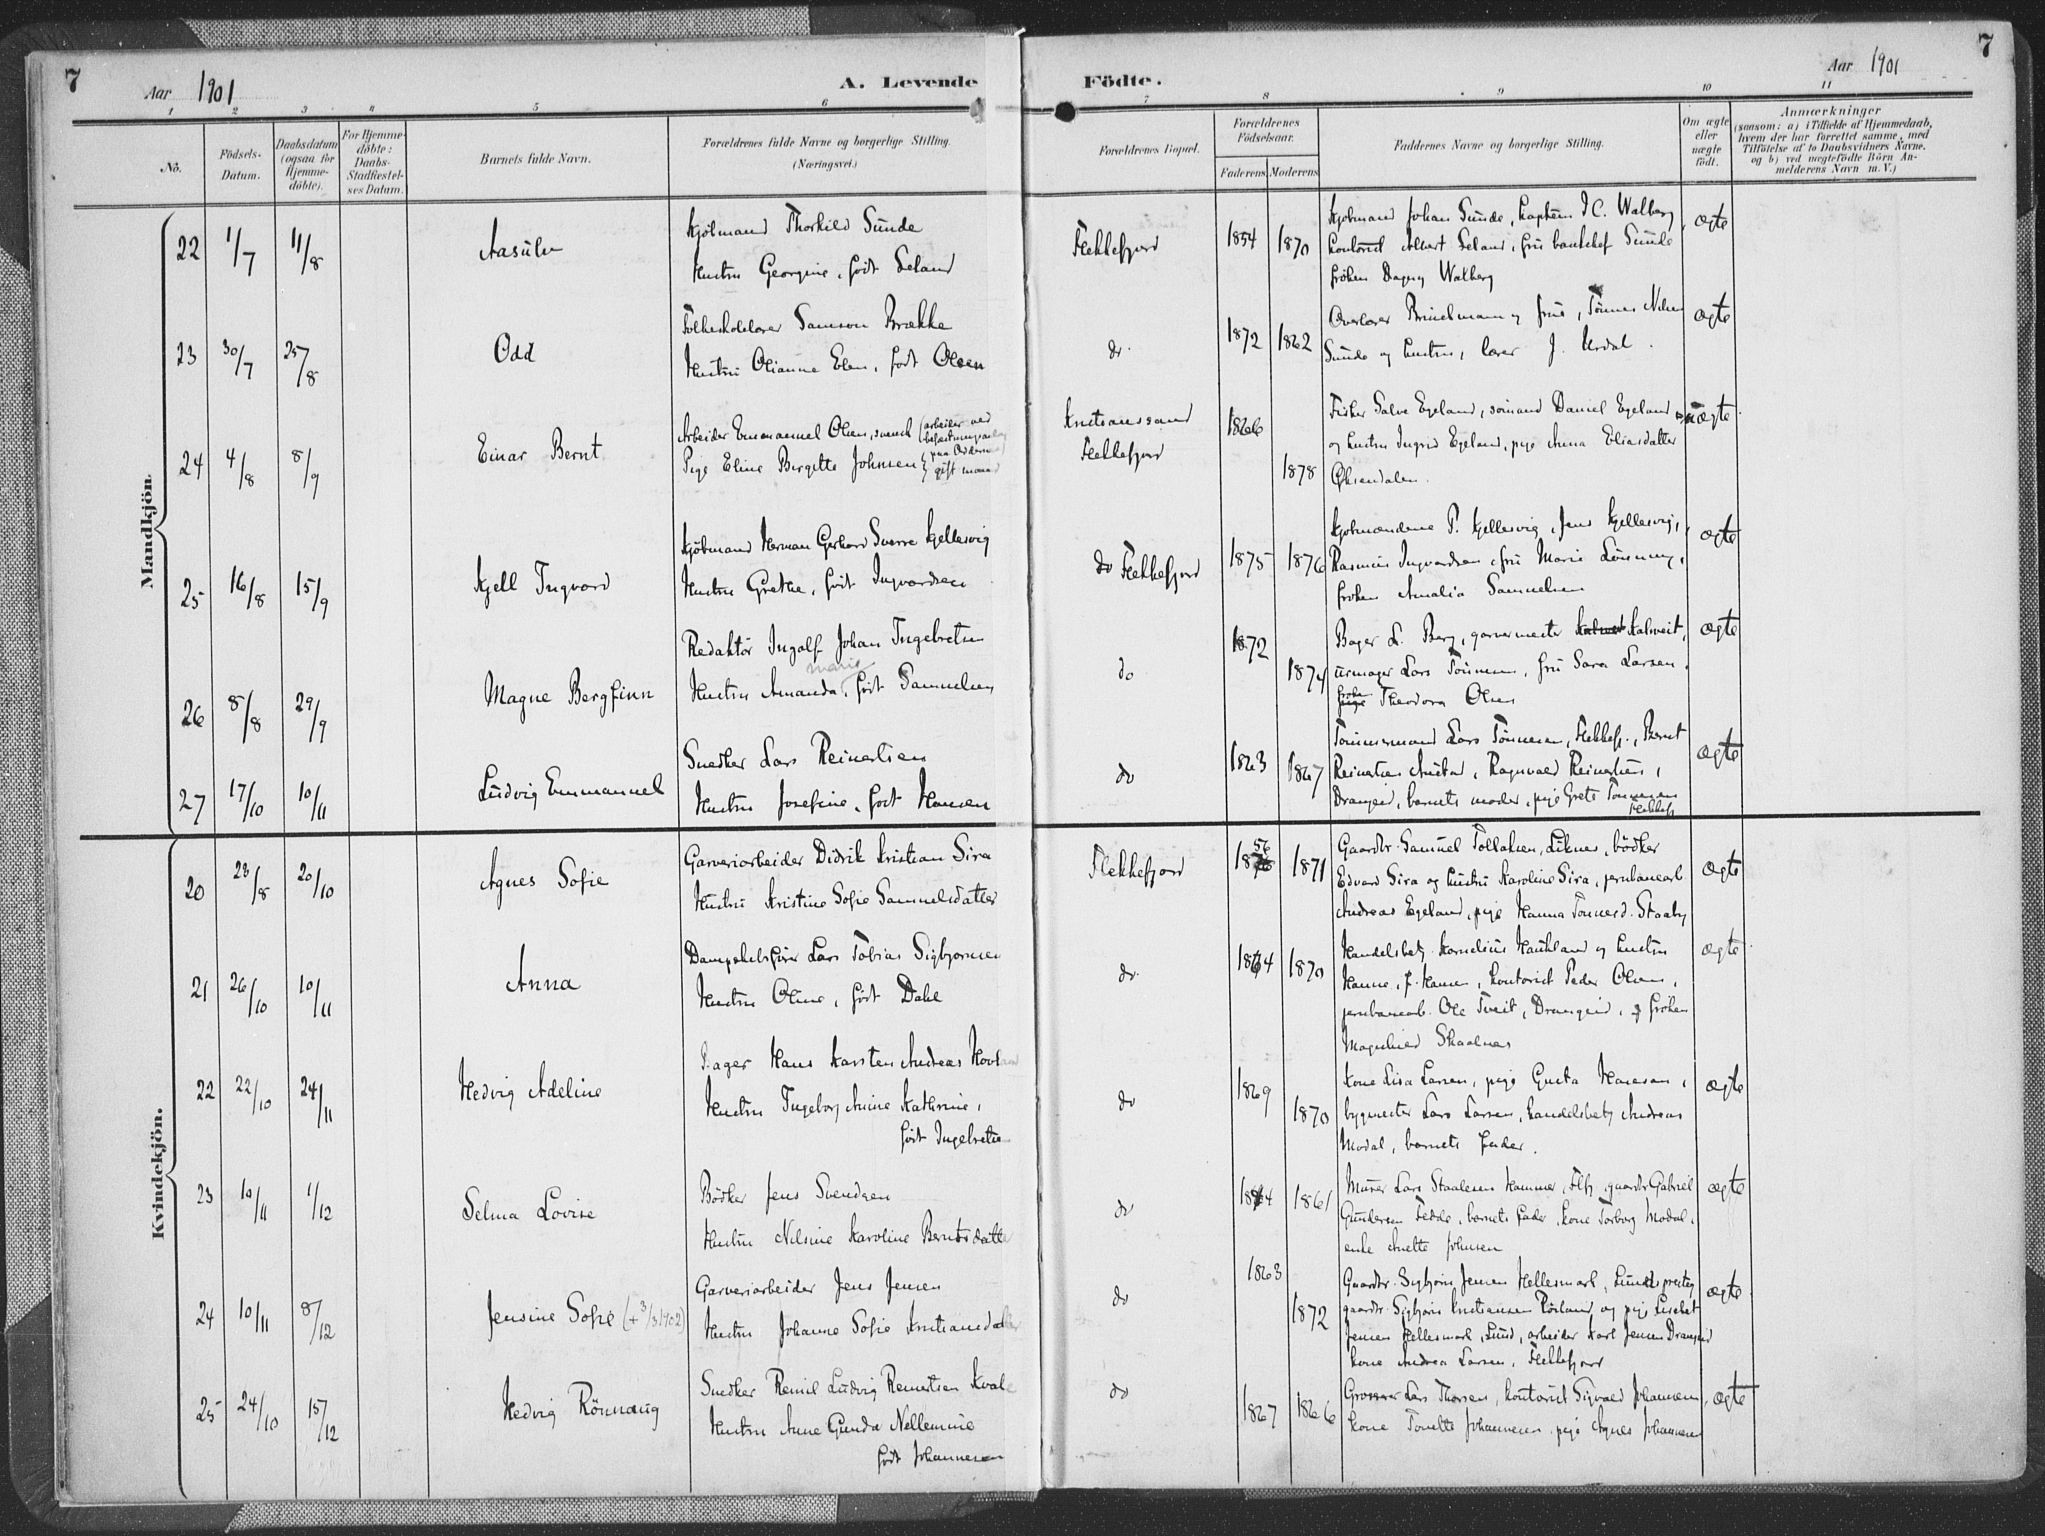 7
Aar 1901
A. Levende
Födte.
Aar 1901
7
1 2 3 4 5 6 7 8 9 10 11
No.
Födsels-Datum.
Daabsdatum (ogsaa for Hjemme-döbte).
For Hjemme-döbte: Daabs-Stadfæstel-ses Datum.
Barnets fulde Navn.
Forældrenes fulde Navne og borgerlige Stilling.
(Næringsvei.)
Forældrenes Bopæl.
Forældrenes Födselsaar.
Faderens Moderens
Faddernes Navne og borgerlige Stilling.
Om ægte eller uægte födt.
Anmærkninger
(saasom: a) i Tilfælde af Hjemmedaab,
hvem der har forrettet samme, med
Tilföielse af to Daabsvidners Navne,
og b) ved uægtefödte Börn An-
melderens Navn m. V.)
Mandkjön.
22 1/7 11/8 Aasulv
Kjöbmand Thorkild Sunde
Hustru Georgine, födt Seland
Flekkefjord 1854 1870
Kjobmand Johan Sunde, kaptein I C. Walberg
kontorist Albert Seland, fru bankchef Sunde
fröken Dagny Walberg
ægte
23 30/7 25/8 Odd
Folkeskolelærer Samson Brække
Hustru Olianne Elen, födt Olsen
do. 1872 1862
Overlærer Brinchmann og frue, Tönnes Nilsen
Sunde og hustru, lærer J. Urdal.
ægte
24 4/8 8/9 Einar Bernt
Arbeider Emmanuel Olsen, svensk (arbeider ved
Pige Eline Birgitte Johnsen gift mand
Kristianssand
Flekkefjord
1866
1878
Fisker Salve Egeland, sömand Daniel Egeland
og hustru Ingrid Egeland, pige Anna Eliasdatter
Öksendalen.
uægte
25 16/8 15/9 Kjell Ingvard
Kjöbmand Herman Gerhard Sverre Kjellesvig
Hustru Grethe, födt Ingvardsen
do Flekkefjord 1875 1876
Kjobmændene P. Kjellesvig, Jens Kjellesvig,
Rasmus Ingvardsen, fru Marie Lönning,
fröken Amalia Samuelsen
ægte
26 8/8 29/9 Magne Bergfinn
Redaktör Ingolf Johan Ingebretsen
Hustru Amanda, födt Samuelsen
marie
do 1872 1874
Bager L. Berg, garvermester Kalveit,
urmager Lars Tönnesen, fru Sara Larsen,
fröken Theodora Olsen
ægte
27 17/10 10/11 Ludvig Emmanuel
Snedker Lars Reinertsen
Hustru Josefine, födt Hansen
do 1863 1867
Tömmermand Lars Tönnesen, Flekkefj., Bernt
Reinertsen, Ragnvald Reinertsen,
Drangeid, barnets moder, pige Grete Tönnesen
Flekkefj
ægte
Kvindekjön.
20 23/8 20/10 Agnes Sofie
Garveriarbeider Didrik Kristian Sira
Hustru Kristine Sofie Samuelsdatter
Flekkefjord 1856 1871
Gaardbr. Samuel Tollaksen, Liknes, bödker
Edvard Sira og hustru Karoline Sira, jernbanearb.
Andreas Egeland, pige Hanna Tönnesd. Staaby
ægte
21 26/10 10/11 Anna
Dampskibsförer Lars Tobias Sigbjörnsen
Hustru Oline, födt Dahl
do. 1864 1870
Handelsbetj. Kornelius Haukland og hustru
Hanne, f. Hansen, kontorist Peder Olsen,
jernbanearb. Ole Tveit, Drangeid, fröken
Magnhild Skaalnes
ægte
22 22/10 24/11 Hedvig Adeline
Bager Hans Karsten Andreas Hovland
Hustru Ingeborg Anine Kathrine,
födt Ingebretsen
do 1869 1870
Kone Lisa Larsen, pige Gusta Hansen,
bygmester Lars Larsen, handelsbetj Andreas
Modal, barnets fader.
ægte
23 10/11 1/12 Selma Lovise
Bödker Jens Svendsen
Hustru Nilsine Karoline Berntsdatter
do 1864 1861
Murer Lars Staalesen Hammer, Flfj, gaardbr Gabriel
Gundersen Fedde, barnets fader, kone Torborg Modal,
enke Anette Johnsen
ægte
24 10/11 8/12 Jensine Sofie (+ 3/3 1902)
Garveriarbeider Jens Jensen
Hustru Johanne Sofie Kristiansdatter
do 1863 1872
Gaardbr. Sigbjörn Jensen Hellesmark, Lunds prestegj
gaardbr. Sigbjörn Kristiansen Rörland og pige Lisebet
Jensen Hellesmark, Lund, arbeider Karl Jensen Drangeid
kone Andrea Larsen, Flekkefjord
ægte
25 24/10 15/12 Hedvig Rönnaug
Snedker Reinil Ludvig Reinertsen Kvale
Hustru Anne Gunda Nellemine
födt Johannesen
do 1867 1866
Grosserer Lars Thorsen, kontorist Sigvald Johannesen,
kone Tonette Johannesen, pige Agnes Johannesen
ægte